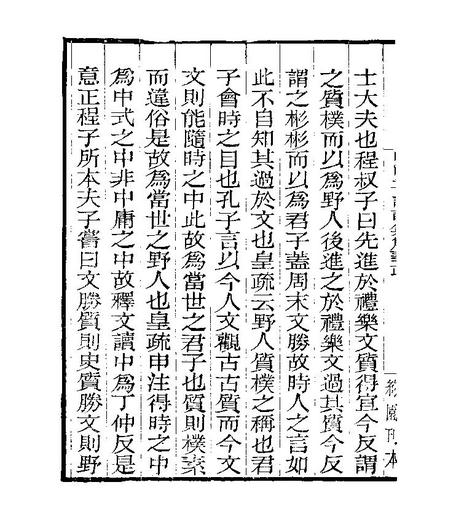 士大夫也程叔子曰先進於禮樂文質得宜今反謂
之質樸而以爲野人後進之於禮樂文過其質今反
謂之彬彬而以爲君子蓋周末文勝故時人之言如
此不自知其過於文也皇疏云野人質樸之稱也君
子會時之目也孔子言以今人文觀古古質而今文
文則能隨時之中此故爲當世之君子也質則樸素
而違俗是故爲當世之野人也皇疏申注得時之中
爲中式之中非中庸之中故釋文讀中爲丁仲反是
意正程子所本夫子嘗曰文勝質則史質勝文則野